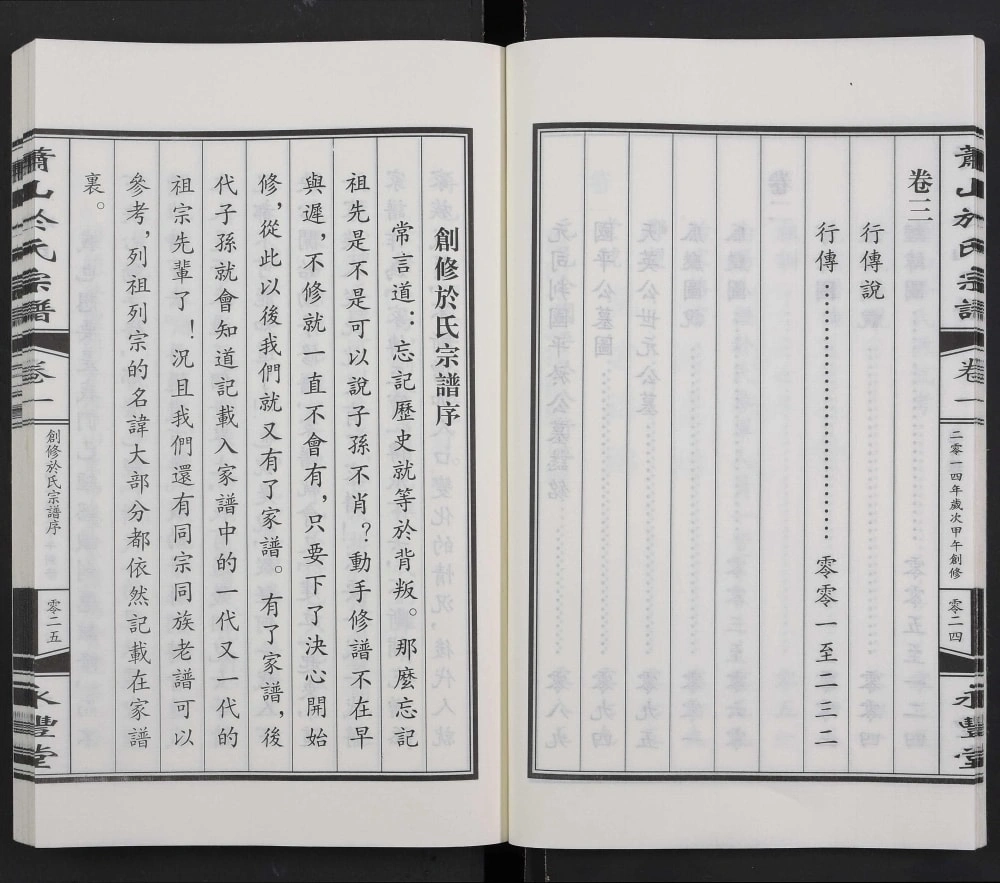 蕭山於氏宗譜
卷一
二零一四年歲次甲午創修
零二四
永豐堂
卷三
行傳說
行傳………………………零零一至二三二
創修於氏宗譜序
常言道：忘記歷史就等於背叛。那麼忘記
祖先是不是可以說子孫不肖？動手修譜不在早
與遲，不修就一直不會有，只要下了決心開始
修，從此以後我們就又有了家譜。有了家譜，後
代子孫就會知道記載入家譜中的一代又一代的
祖宗先輩了！況且我們還有同宗同族老譜可以
參考，列祖列宗的名諱大部分都依然記載在家譜
裏。
蕭山於氏宗譜
卷一
創修於氏宗譜序
零二五
永豐堂